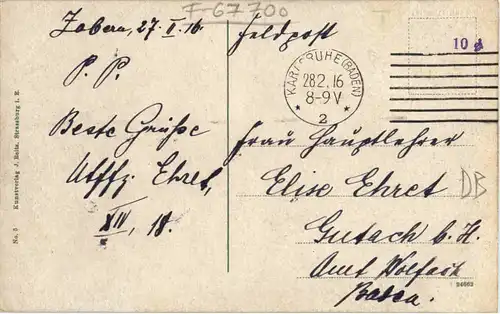 F-67700
Zabern, 27. II. 16
Feldpost
10 d
KARLSRUHE (BADEN)
28.2.16
8-9 V
* 2 *
P. P.
Beste Grüsse
Utffz. Ehret,
XIV, 18.
Frau Hauptlehrer
Elise Ehret
DB
Gutach b. H.
Amt Wolfach
Baden.
No. 3 Kunstverlag J. Strassburg i. E.
24662